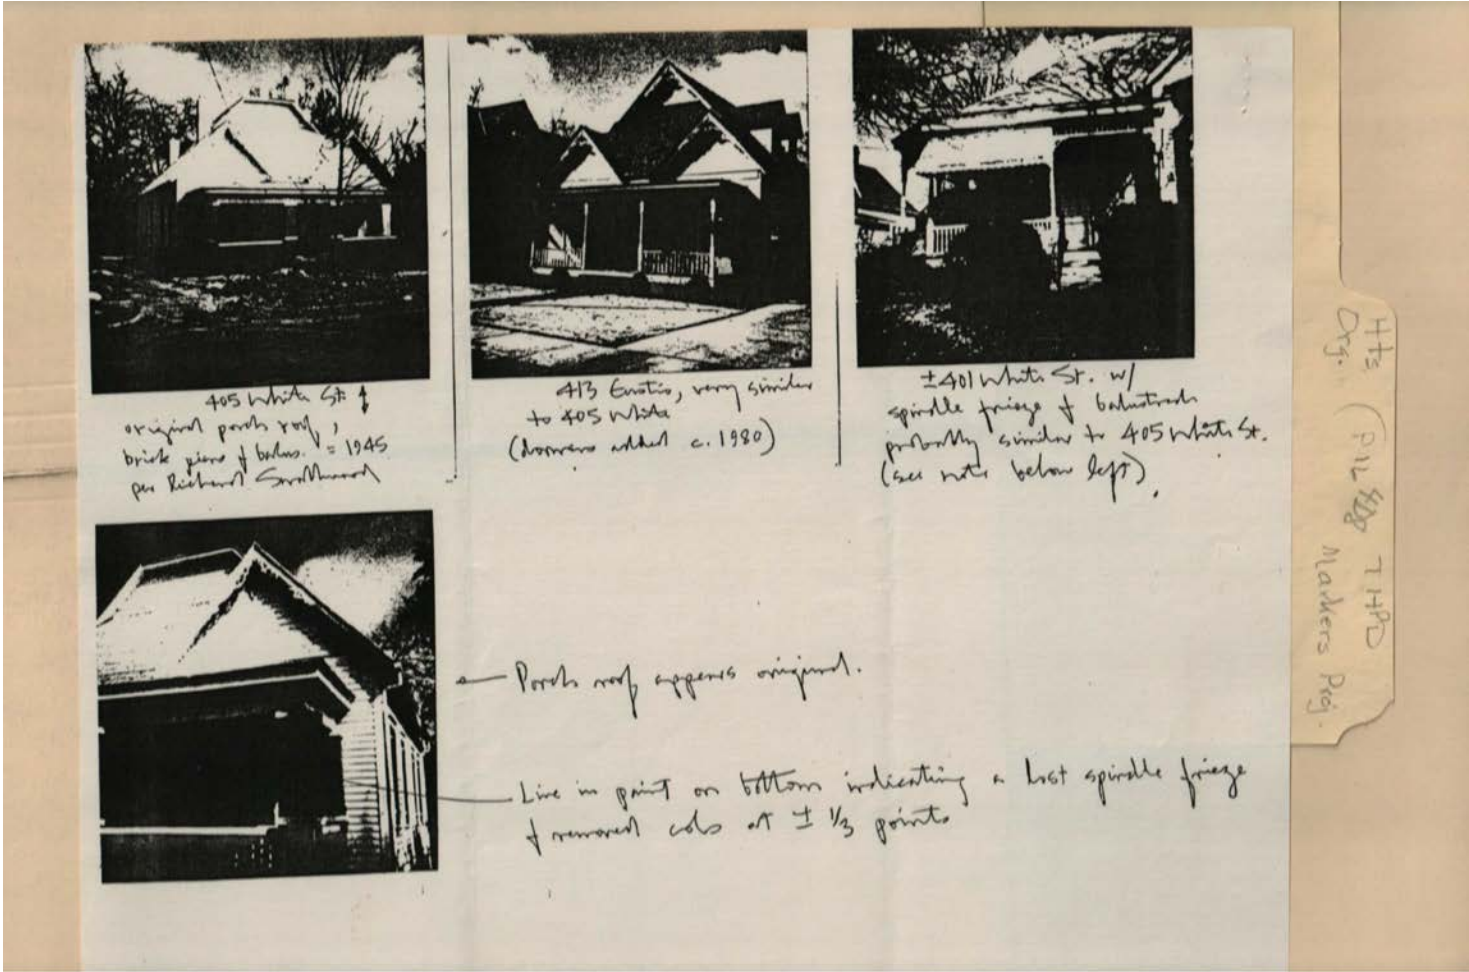 405 White St.
original porch roof,
brick piers & balus. = 1945
per Richard
413 Eustis, very similar
to 405 White
(dormers added c. 1980)
±401 White St. w/
spindle frieze & balustrade
probably similar to 405 White St.
(see note below left).
Porch roof appears original.
Line in paint on bottom indicating a lost spindle frieze
& removed cols at ± 1/3 points
Hts
Org. (
THPD
Markers Proj.